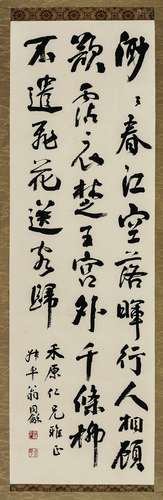 渺〻春江空落暉行人相顧
欲霑衣楚王宮外千條柳
不遣飛花送客歸
禾原仁兄雅正
叔平翁同龢